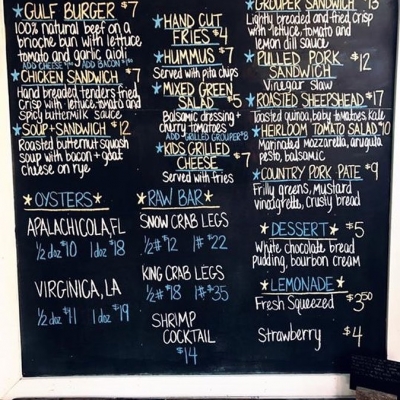 GULF BURGER $7
100% natural beef on a
brioche bun with lettuce
tomato and garlic aioli
ADD CHEESE ADD BACON
CHICKEN SANDWICH $7
Hand breaded tenders fried
crisp with lettuce, tomato and
spicy buttermilk sauce
SOUP + SANDWICH $12
Roasted butternut squash
soup with bacon + goat
cheese on rye
OYSTERS
APALACHICOLA, FL
1/2 doz $10 1 doz $18
VIRGINICA, LA
1/2 doz $11 1 doz $19
HAND CUT
FRIES $4
HUMMUS $7
Served with pita chips
MIXED GREEN
SALAD $5
Balsamic dressing +
cherry tomatoes
ADD GRILLED GROUPER $8
KIDS GRILLED
CHEESE $7
Served with fries
RAW BAR
SNOW CRAB LEGS
1/2# $12 1# $22
KING CRAB LEGS
1/2# $18 1# $35
SHRIMP
COCKTAIL
$14
GROUPER SANDWICH $13
Lightly breaded and fried crisp
with lettuce, tomato and
lemon dill sauce
PULLED PORK $12
SANDWICH
Vinegar slaw
ROASTED SHEEPSHEAD $17
Toasted quinoa, baby tomatoes, kale
HEIRLOOM TOMATO SALAD $10
Marinated mozzarella, arugula
pesto, balsamic
COUNTRY PORK PATE $9
Frilly greens, mustard
vinaigrette, crusty bread
DESSERT $5
White chocolate bread
pudding, bourbon cream
LEMONADE
Fresh Squeezed $3.50
Strawberry $4